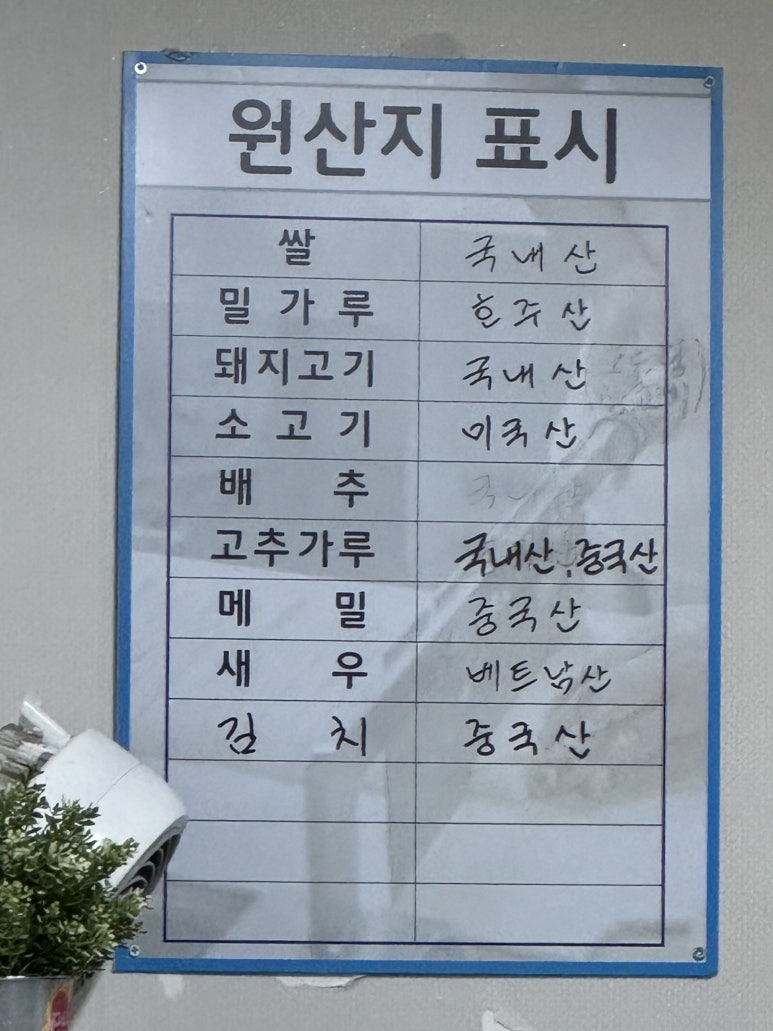 원산지 표시
쌀 국내산
밀가루 호주산
돼지고기 국내산
소고기 미국산
배추 국내산
고추가루 국내산, 중국산
메밀 중국산
새우 베트남산
김치 중국산